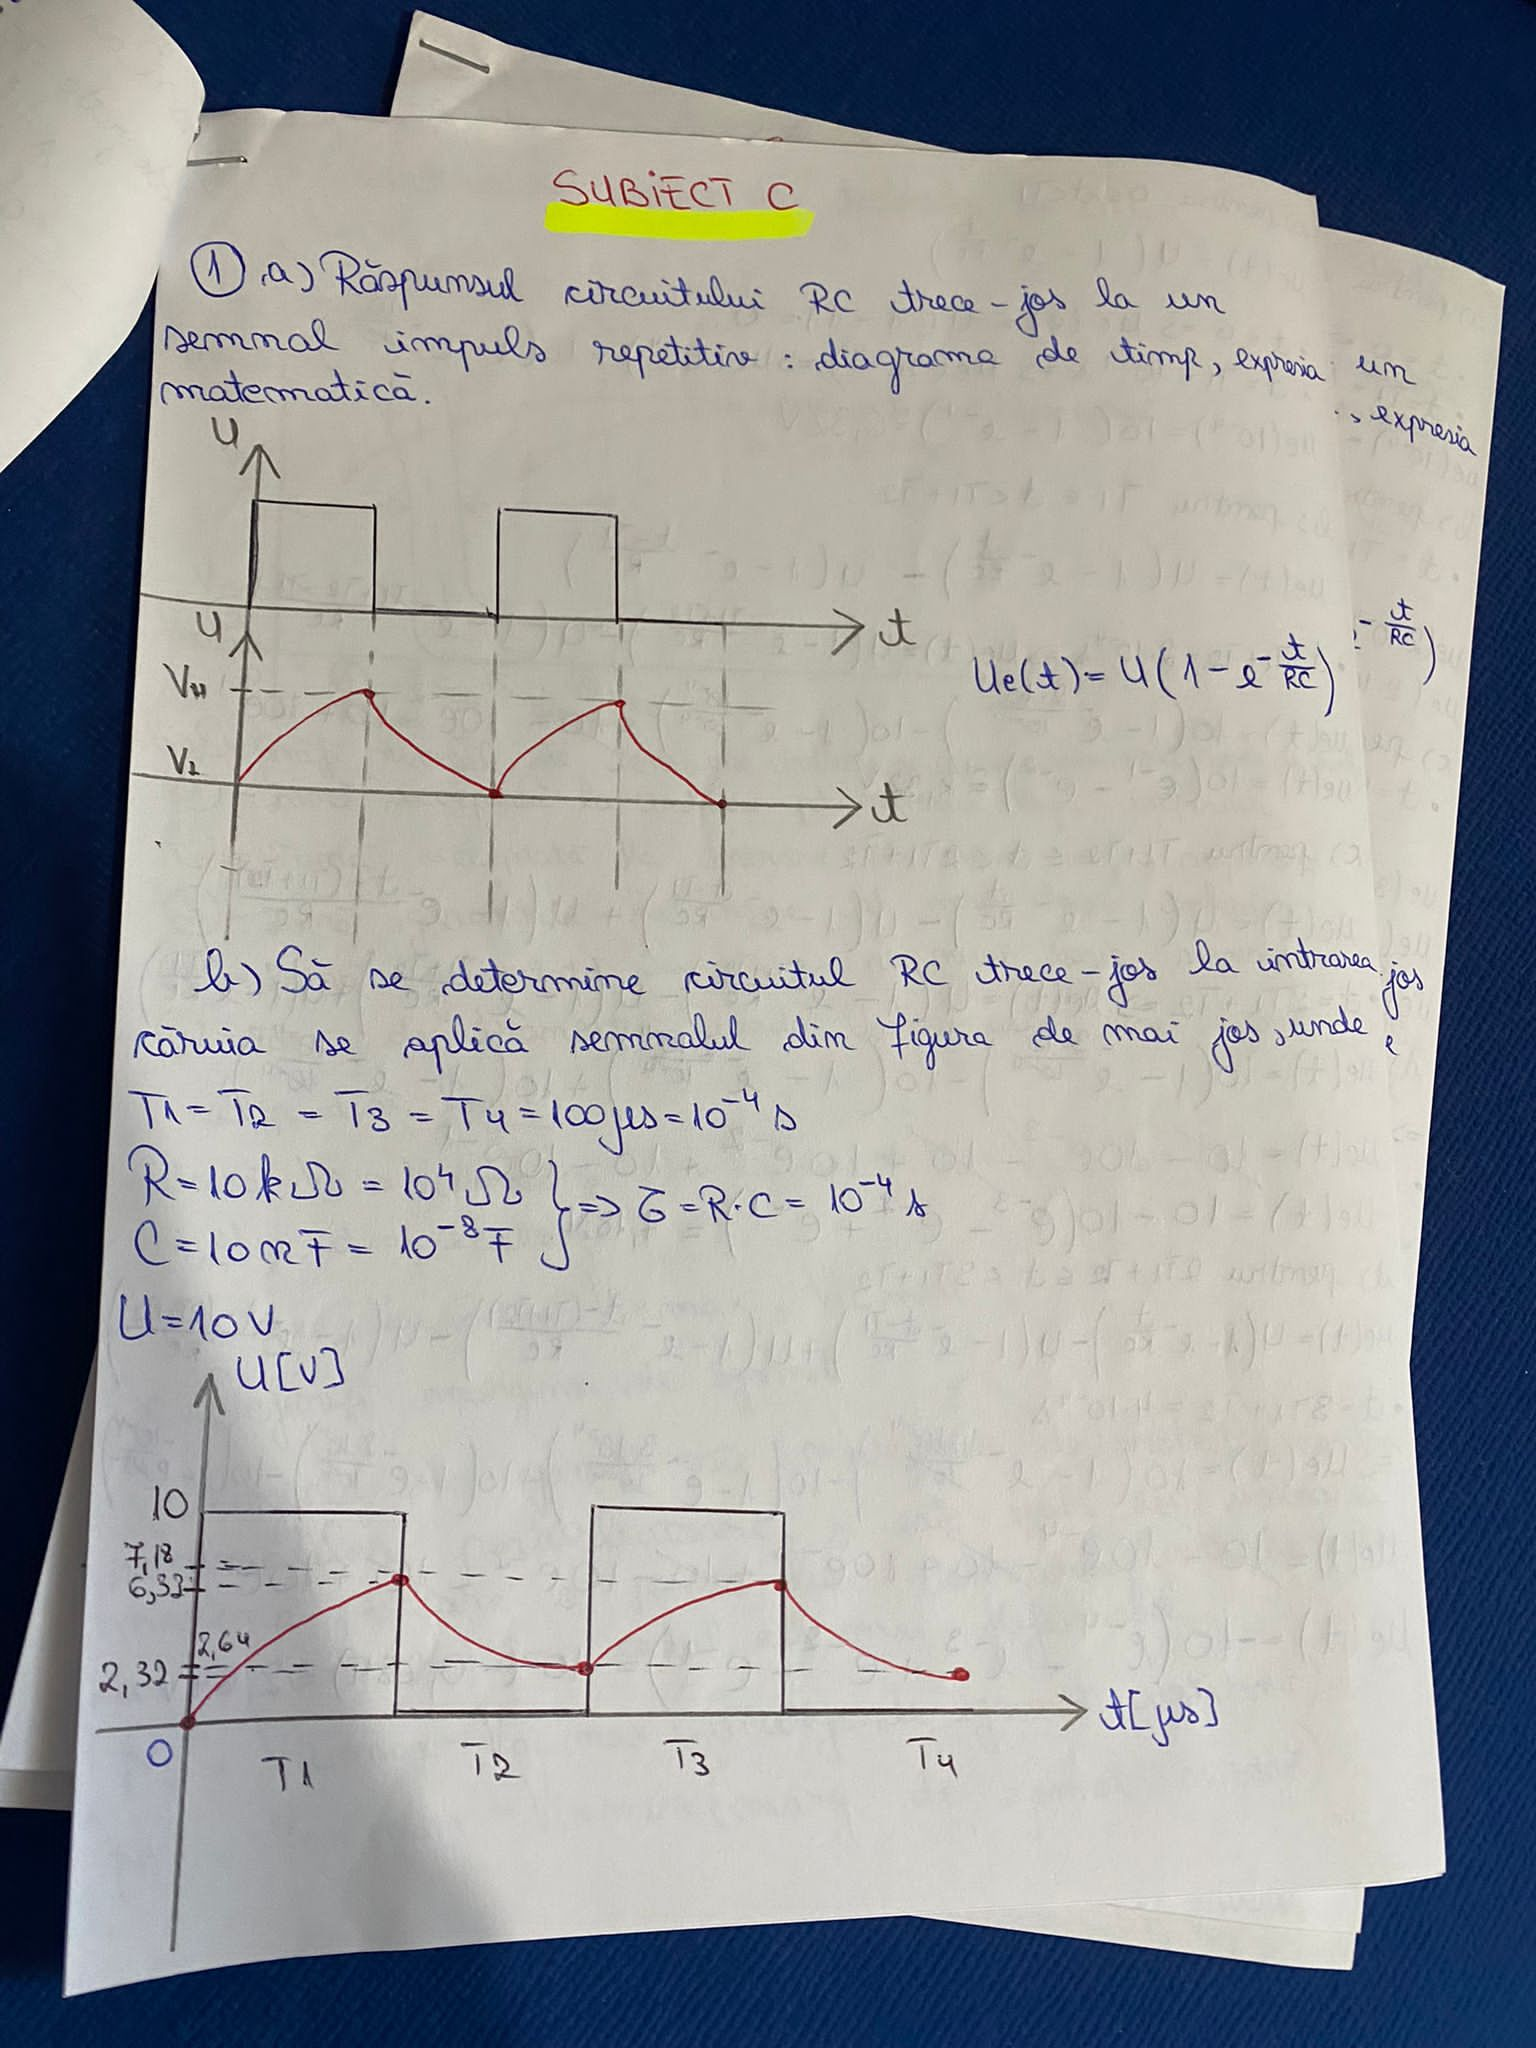 SUBIECT C
1 a) Răspunsul circuitului RC trece-jos la un
semnal impuls repetitiv: diagrama de timp, expresia un
matematică.
, expresia
U
t
U
VH
V1
t
Ue(t)=U(1-e^-t/RC)
-t/RC)
b) Să se determine circuitul RC trece-jos la intrarea jos
căruia se aplică semnalul din figura de mai jos, unde
T1=T2=T3=T4=100μs=10^-4 s
R=10kΩ=10^4 Ω
C=10nF=10^-8 F
} => τ=R·C=10^-4 s
U=10V
U[V]
10
7,18
6,32
2,64
2,32
0
T1 T2 T3 T4
t[μs]